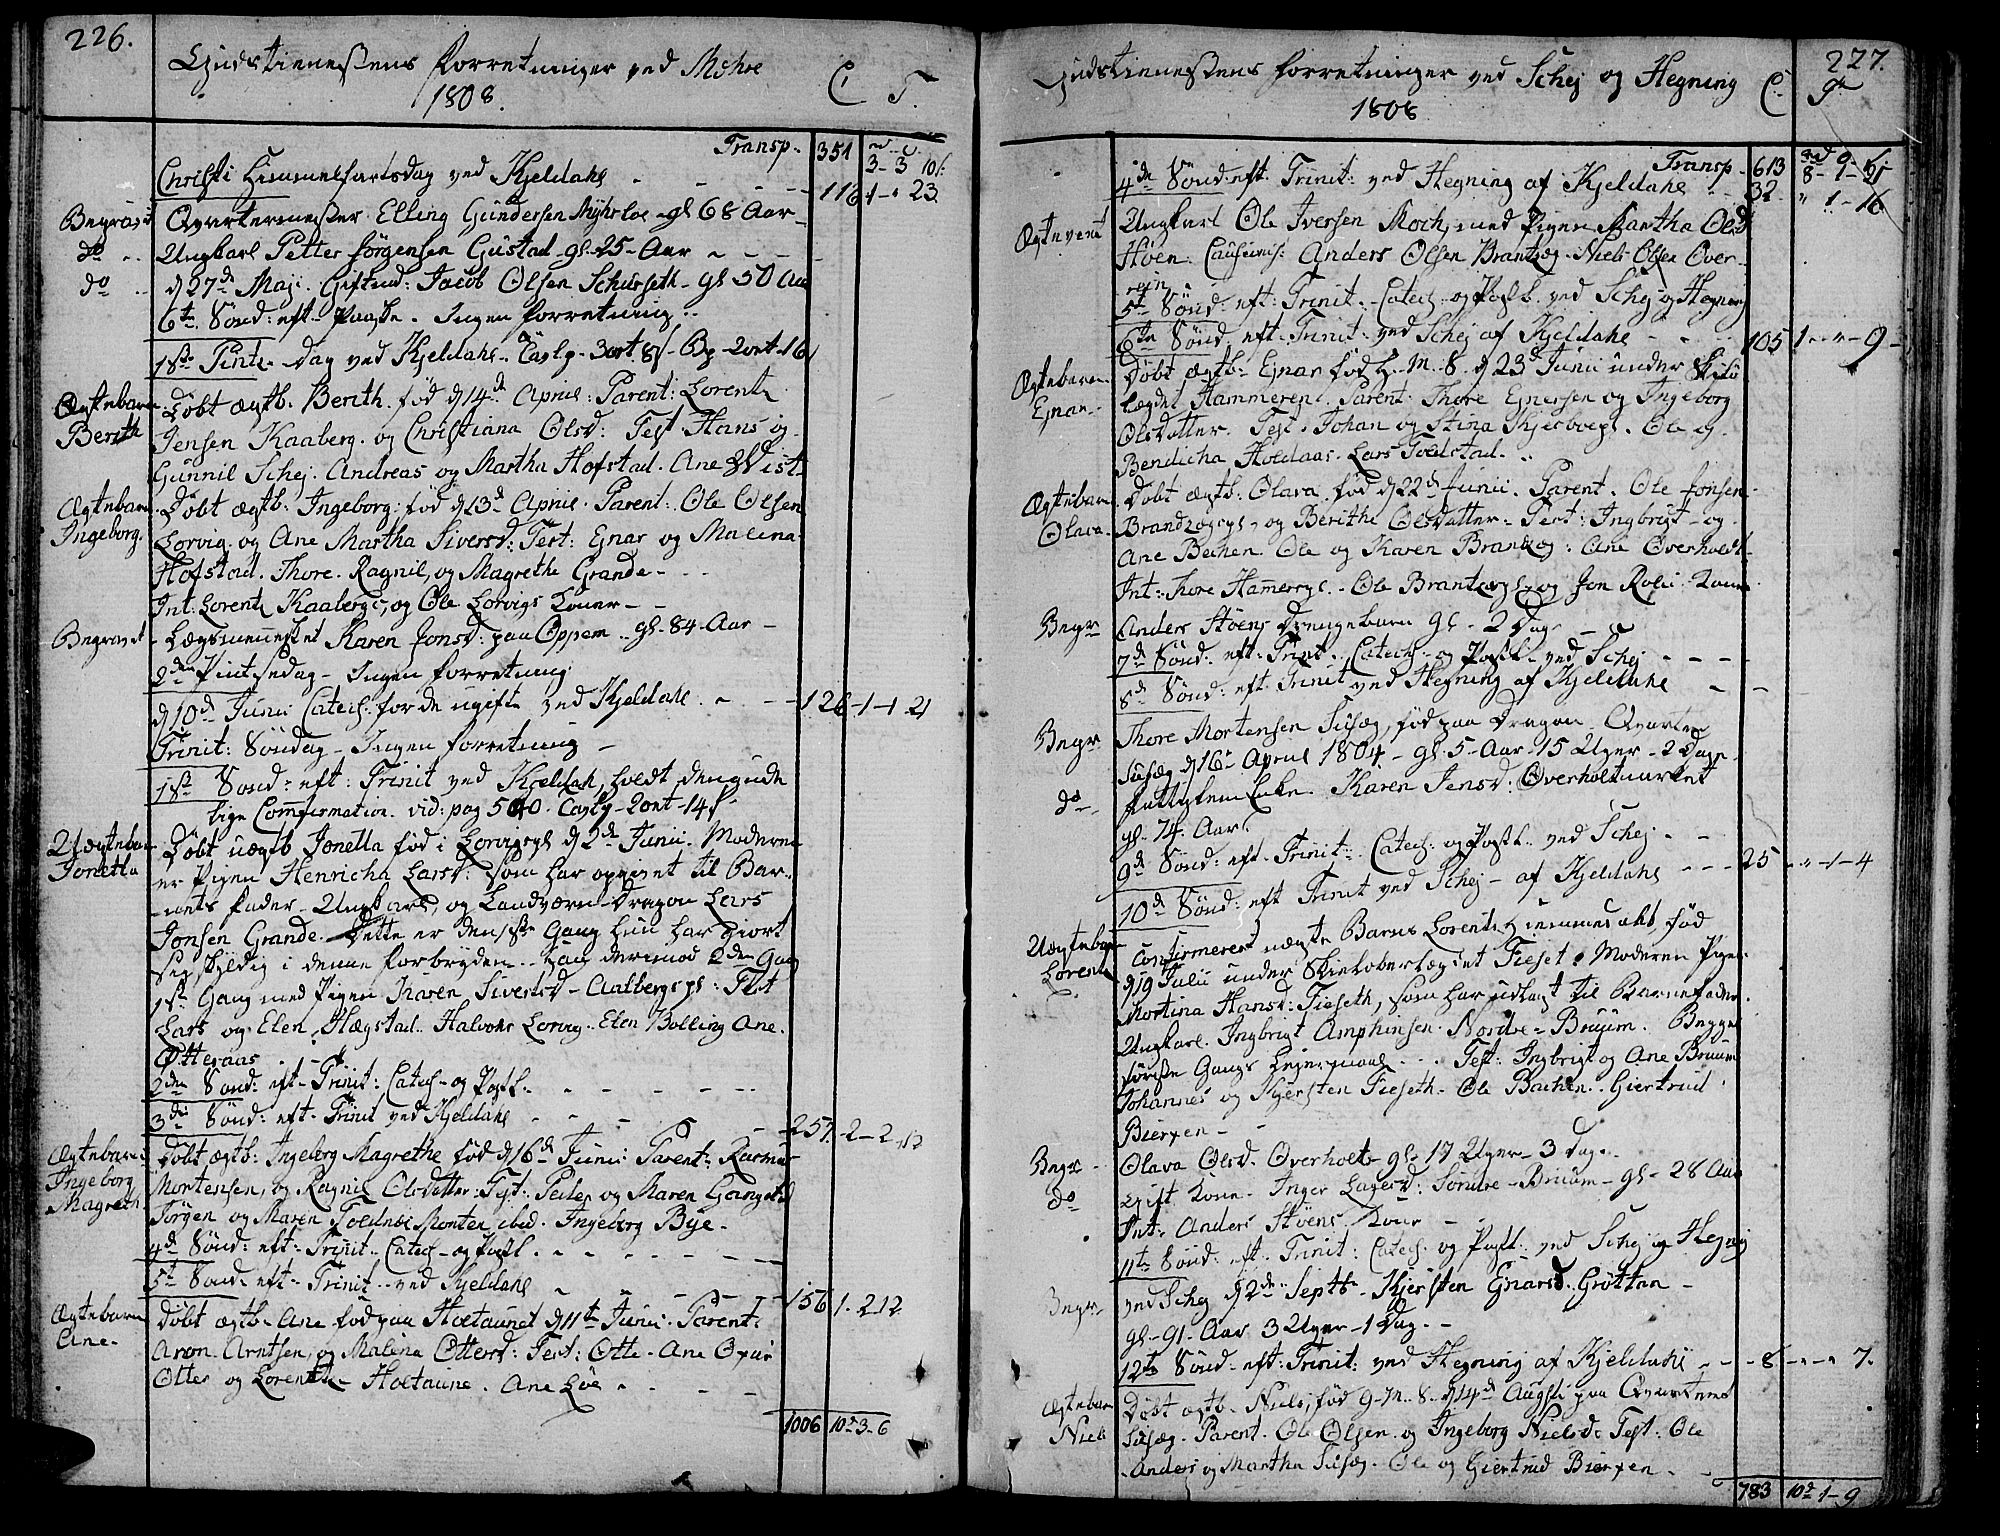 226.
Gudstienestens Forretninger ved Mehre
1808.
C. T.
Transp. 351 3-3 10
Christi Himmelfartsdag ved Kjeldahl 116 1 " 23
Begravet Qvartermester Elling Gundersen Myhrloe gl 68 Aar
do Ungkarl Petter Jørgensen Gustad gl 25 Aar
do d 27de Maji Giftmd: Jacob Olsen Schurseth gl 50 Aar
6te Sønd: eft Paaske. Ingen Forretning
1ste Pintz dag ved Kjeldahl. Tavlp. 3 ort 8 Bp 2 ort 16
Ægtebarn Døbt ægtb. Berith. fød d 14de April Parent: Lorentz
Berith Jensen Kaaberg og Christiana Olsd: Test Hans og
Gunnil Schej. Andreas og Martha Hofstad. Ane Wist
Ægtebarn Døbt ægtb. Ingeborg: fød d 13d April. Parent: Ole Olsen
Ingeborg. Lorvig og Ane Martha Siversd: Test: Ejnar og Malena
Hofstad. Thore. Ragnil, og Magrethe Grande
Int: Lorentz Kaabergs, og Ole Lorvigs Koner
Begravet Lægsmennesket Karen Jonsd: paa Oppem gl 84 Aar
2den Pintsedag Ingen Forretning
d 10d Junii Catech: for de ugifte ved Kjeldahl 126 1-1 21
Trinit: Søndag Ingen Forretning
1ste Sønd: eft: Trinit ved Kjeldah, holdt den aande
lige Comfirmation vid: pag 540. Tavlp 2 ort 14
Uægtebarn Døbt uægtb Jonetta fød i Lorvigegl d 2de Junii. Moderen
Jonetta er Pigen Henricha Larsd: som har opgivet til Bar-
nets Fader Ungkarl, og Landværn Dragon Lars
Jonsen Grande. Dette er den 1ste Gang hun har giort
sig skyldig i denne Forbrydelse. Han derimod 2den Gang
1ste Gang med Pigen Karen Siversd Aalbergsgl: Test
Lars og Elen Hægstad. Halvohr Lorvig. Elen Bolling Ane
Otteraas
2den Sønd: eft Trinit: Catech og Postl.
3de Sønd: eft Trinit ved Kjeldahl 257 2-2 12
Ægtebarn Døbt ægtb: Ingeborg Magrethe fød d 16d Junii Parent: Rasmus
Ingeborg Mortensen, og Ragnil Olsdatter. Test: Peder og Maren Gangstad
Magreth. Jørgen og Maren Toldnes Morten ibid. Ingeborg Bye
4d Sønd: eft: Trinit. Catech og Postl.
5te Sønd: eft Trinit ved Kjeldahl 156 1. 2 12
Ægtebarn Døbt ægtb. Ane fød paa Hoetaunet d 11te Junii Parent:
Ane Aron Arntsen, og Malena Ottersd: Test: Otte. Ane
Otter og Lorentz Hoetaune. Ane Løe
1006 10 3-6
227.
Gudstienestens Forretninger ved Schej og Hegning
1808
C. T.
Transp 613
4de Sønd: eft: Trinit: ved Hegning af Kjeldahl 32 " 1-16
Ægteviet Ungkarl Ole Iversen Moch, med Pigen Martha Olsd
Støen Cautionis: Anders Olsen Brantzæg. Niels Olsen Over-
rejn
5te Sønd: eft: Trinit. Catech og Postl. ved Schej og Hegning
6te Sønd: eft Trinit: ved Schej af Kjeldahl 105 1 " 9
Ægtebarn Døbt ægtb. Ejnar fød H. M. 8. d 23d Junii under Skiø
Ejnar lægdet Hammeregl. Parent: Thore Ejnersen og Ingeborg
Olsdatter. Test. Johan og Stina Kjerboegl. Ole og
Bendicha Holdaas. Lars Toldstad.
Ægtebarn Døbt ægtb: Olava. fød d 22d Junii. Parent. Ole Jonsen
Olava Brandzogegl og Berithe Olsdatter. Test: Ingbrigt og
Ane Bachen. Ole og Karen Brantzæg: Ane Overholdt
Int: Thore Hameregl. Ole Brantzægl og Jon Koner
Begr Anders Støens Drengebarn gl 2 Dage
7d Sønd: eft: Trinit. Catech og Postl. ved Schej
8d Sønd: eft Trinit ved Hegning af Kjeldahl
Begr Thore Mortensen Susæg, fød paa Dragon Qvarteret
Susæg d 16de April 1804 gl 5 Aar 15 Uger 2 Dage
do Fattiglem Enke Karen Jensd: Overholtmarket
gl 74 Aar
9d Sønd: eft. Trinit: Catech: og Postl. ved Schej
10d Sønd: eft Trinit ved Schej af Kjeldahl 25 " 1-4
Uægtebarn Confirmeret uægte Barns Lorentz Hiemmedaab, fød
Lorentz d 19 Julii under Lægdet Fieset. Moderen Pigen
Mortina Hansd: Fieseth, som har udlagt til Barnefader
Ungkarl. Ingbrigt Amphinsen Nordre Bruum. Begges
første Gangs Lejermaal. Test: Ingbrigt og Ane Bruum
Johannes og Kjersten Fieseth. Ole Bachen. Giertrud
Bierxen
Begr Olava Olsd. Overholt gl 17 Uger 3 Dage
do Gift Kone Inger Lagesd: Søndre Bruum gl 28 Aar
Int: Anders Støens Kone
11te Sønd: eft. Trinit: Catech: og Postl: ved Schej og Hegnig
Begr ved Schej d 2de Septb Kjersten Enarsd. Grøttan
gl 91 Aar 3 Uger 1 Dag.
12te Sønd: eft: Trinit: ved Hegning af Kjeldahl 8 " " 7.
Ægtebarn Døbt ægtb. Niels, fød d 14d Augsti paa Qvarteret
Niels Susæg. Parent. Ole Olsen og Ingeborg Nielsd: Test: Ole
Anders og Martha Susæg. Ole og Giertrud Bierxen
783 10 1-9